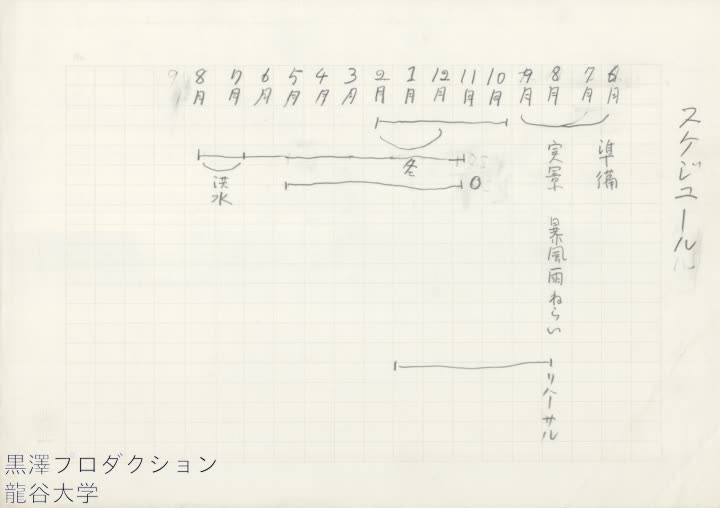 スケジュール
6月 7月 8月 9月 10月 11月 12月 1月 2月 3月 4月 5月 6月 7月 8月 9
準備
実景 暴風雨ねらい
リハーサル
冬
洪水
黒澤プロダクション
龍谷大学